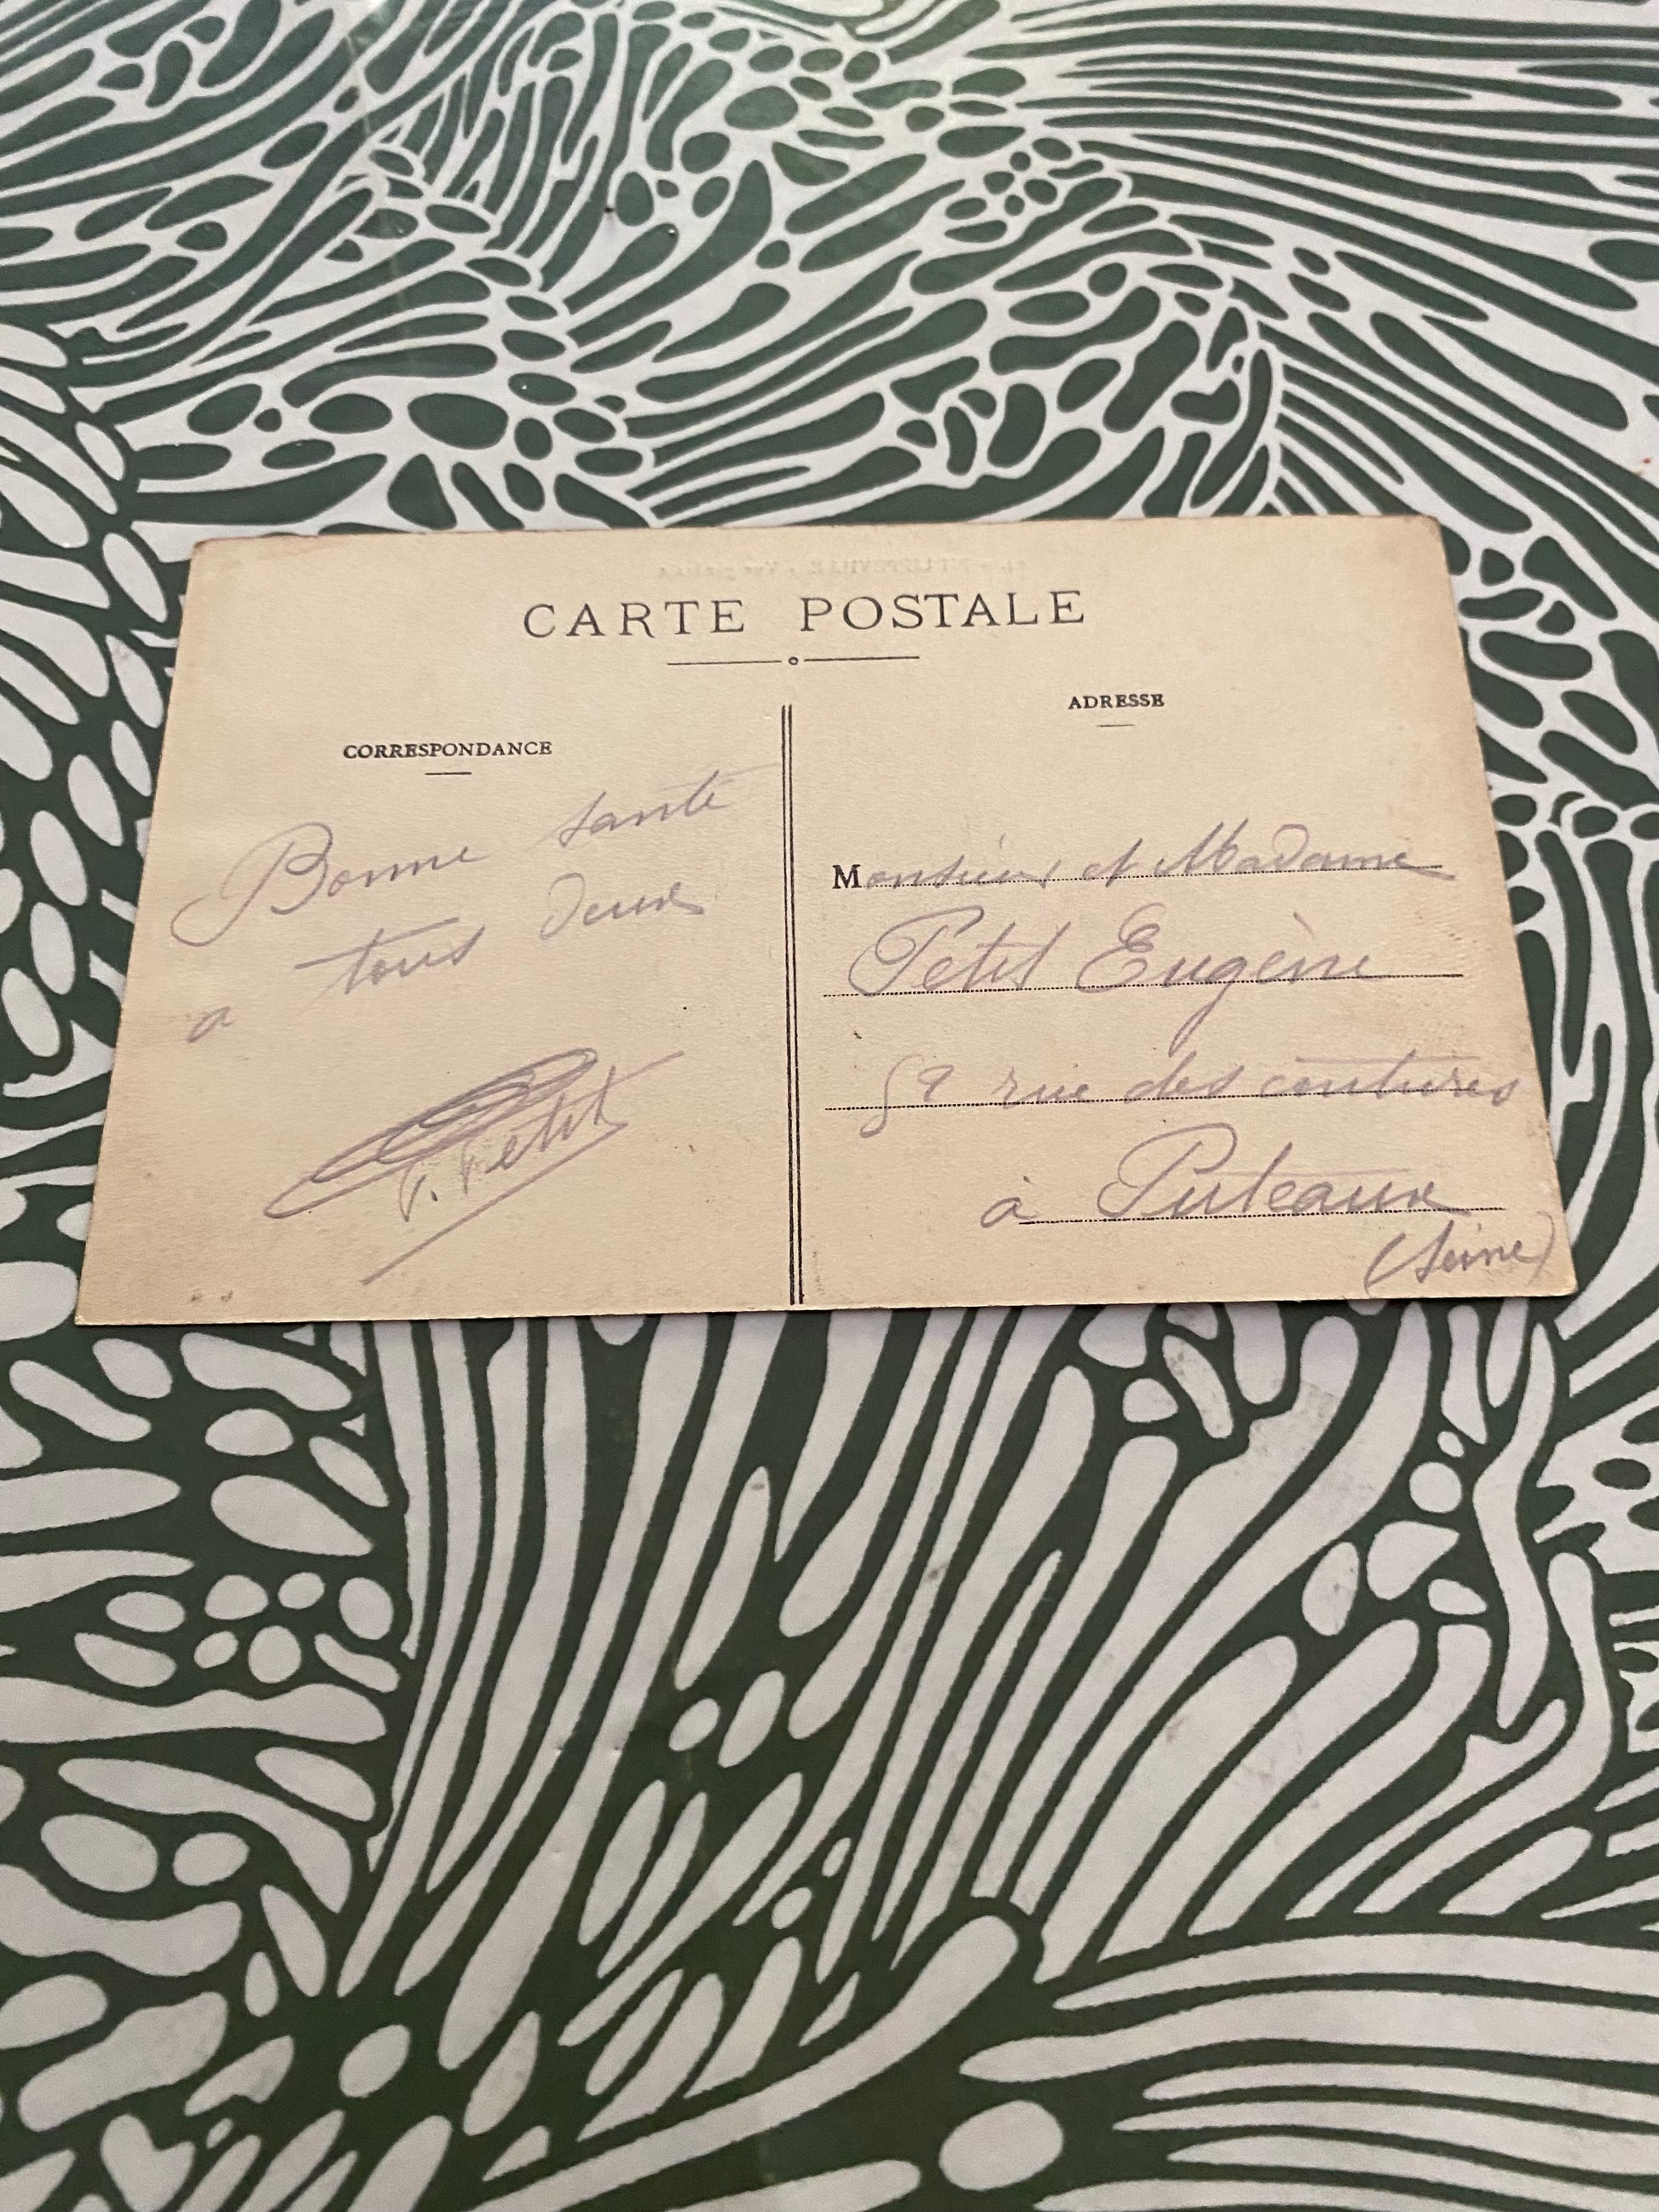 CARTE POSTALE
CORRESPONDANCE
Bonne santé
a tous deux
P. Petit
ADRESSE
Monsieur et Madame
Petit Eugène
59 rue des coutures
à Puteaux
(Seine)